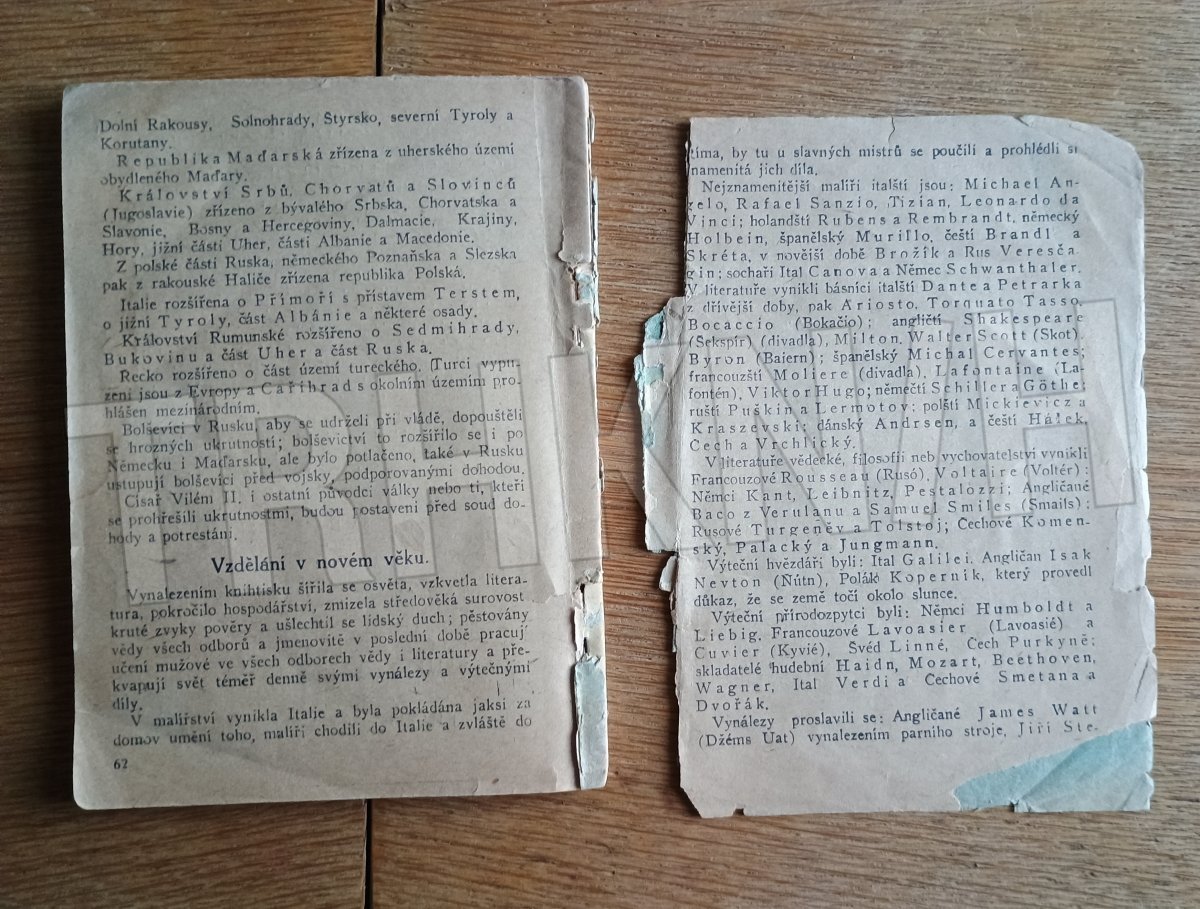 Dolní Rakousy, Solnohrady, Štyrsko, severní Tyroly a
Korutany.
Republika Maďarská zřízena z uherského území
obydleného Maďary.
Království Srbů, Chorvatů a Slovinců
(Jugoslavie) zřízeno z bývalého Srbska, Chorvatska a
Slavonie, Bosny a Hercegoviny, Dalmacie, Krajiny,
Hory, jižní části Uher, části Albanie a Macedonie.
Z polské části Ruska, německého Poznaňska a Slezska
pak z rakouské Haliče zřízena republika Polská.
Italie rozšířena o Přímoří s přístavem Terstem,
o jižní Tyroly, část Albánie a některé osady.
Království Rumunské rozšířeno o Sedmihrady,
Bukovinu a část Uher a část Ruska.
Řecko rozšířeno o část území tureckého. Turci vypu-
zeni jsou z Evropy a Cařihrad s okolním územím pro-
hlášen mezinárodním.
Bolševíci v Rusku, aby se udrželi při vládě, dopouštěli
se hrozných ukrutností; bolševictví to rozšířilo se i po
Německu i Maďarsku, ale bylo potlačeno, také v Rusku
ustupují bolševíci před vojsky, podporovanými dohodou.
Císař Vilém II. i ostatní původci války nebo ti, kteří
se prohřešili ukrutnostmi, budou postaveni před soud do-
hody a potrestáni.
Vzdělání v novém věku.
Vynalezením knihtisku šířila se osvěta, vzkvetla litera-
tura, pokročilo hospodářství, zmizela středověká surovost
kruté zvyky pověry a ušlechtil se lidský duch; pěstovány
vědy všech odborů a jmenovitě v poslední době pracují
učení mužové ve všech odborech vědy i literatury a pře-
kvapují svět téměř denně svými vynálezy a výtečnými
díly.
V malířství vynikla Italie a byla pokládána jaksi za
domov umění toho, malíři chodili do Italie a zvláště do
62
tíma, by tu u slavných mistrů se poučili a prohlédli si
namenitá jich díla.
Nejznamenitější malíři italští jsou: Michael An-
gelo, Rafael Sanzio, Tizian, Leonardo da
Vinci; holandští Rubens a Rembrandt, německý
Holbein, španělský Murillo, čeští Brandl a
Skréta, v novější době Brožík a Rus Veresča
gin; sochaři Ital Canova a Němec Schwanthaler.
V literatuře vynikli básníci italští Dante a Petrarka
z dřívější doby, pak Ariosto, Torquato Tasso,
Bocaccio (Bokačio); angličtí Shakespeare
(Šekspír) (divadla), Milton, Walter Scott (Skot).
Byron (Baiern); španělský Michal Cervantes;
francouzští Moliere (divadla), Lafontaine (La-
fontén), Viktor Hugo; němečtí Schiller a Göthe;
ruští Puškin a Lermotov; polští Mickievicz a
Kraszevski; dánský Andrsen, a čeští Hálek,
Čech a Vrchlický.
V literatuře vědecké, filosofii neb vychovatelství vynikli
Francouzové Rousseau (Rusó), Voltaire (Voltér):
Němci Kant, Leibnitz, Pestalozzi; Angličané
Baco z Verulanu a Samuel Smiles (Smails):
Rusové Turgeněv a Tolstoj; Čechové Komen-
ský, Palacký a Jungmann.
Výteční hvězdáři byli: Ital Galilei, Angličan Isak
Nevton (Nútn), Polák Kopernik, který provedl
důkaz, že se země točí okolo slunce.
Výteční přírodozpytci byli: Němci Humboldt a
Liebig, Francouzové Lavoasier (Lavoasié) a
Cuvier (Kyvié), Švéd Linné, Čech Purkyně;
skladatelé hudební Haidn, Mozart, Beethoven,
Wagner, Ital Verdi a Čechové Smetana a
Dvořák.
Vynálezy proslavili se: Angličané James Watt
(Džéms Uat) vynalezením parního stroje, Jiří Ste-